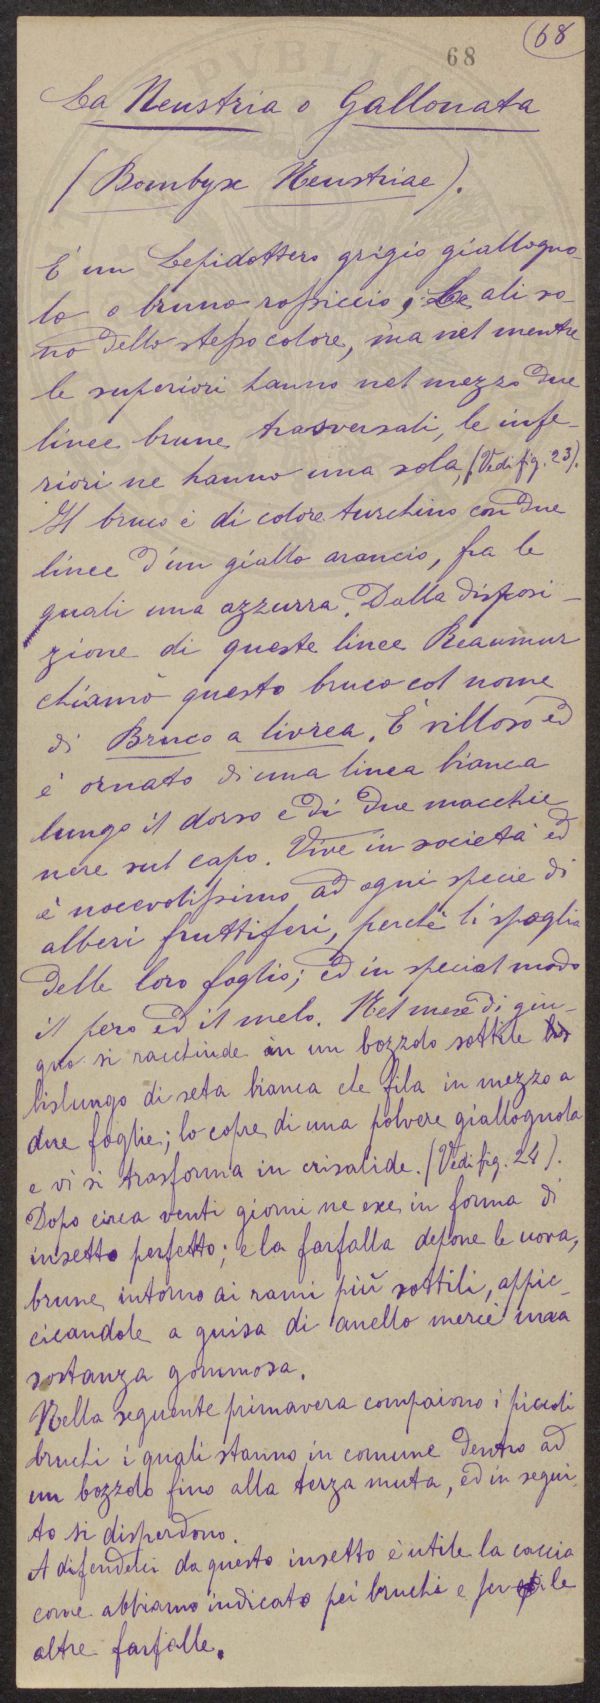 68
68
La Neustria o Gallonata
(Bombyx Neustriae).
È un Lepidottero grigio giallogno-
lo o bruno rossiccio, Le ali so-
no dello stesso colore, ma nel mentre
le superiori hanno nel mezzo due
linee brune trasversali, le infe-
riori ne hanno una sola, (Vedi fig. 23).
Il bruco è di colore turchino con due
linee d'un giallo arancio, fra le
quali una azzurra. Dalla disposi-
zione di queste linee Reaumur
chiamò questo bruco col nome
di Bruco a livrea. È villoso ed
è ornato di una linea bianca
lungo il dorso e di due macchie
nere sul capo. Vive in società ed
è nocevolissimo ad ogni specie di
alberi fruttiferi, perchè li spoglia
delle loro foglie; ed in special modo
il pero ed il melo. Nel mese di giu-
gno si racchiude in un bozzolo sottile
bislungo di seta bianca che fila in mezzo a
due foglie; lo copre di una polvere giallognola
e vi si trasforma in crisalide. (Vedi fig. 24).
Dopo circa venti giorni ne esce in forma di
insetto perfetto; e la farfalla depone le uova,
brune intorno ai rami più sottili, appic-
cicandole a guisa di anello mercè una
sostanza gommosa.
Nella seguente primavera compaiono i piccoli
bruchi i quali stanno in comune dentro ad
un bozzolo fino alla terza muta, ed in segui-
to si disperdono.
A difenderci da questo insetto è utile la caccia
come abbiamo indicato pei bruchi e per le
altre farfalle.